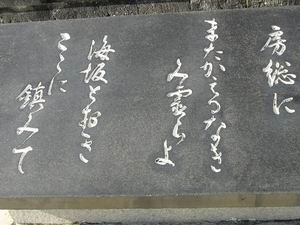 房総に
またかへるなき
人霊らよ
海坂とほき
ここに
鎮みて